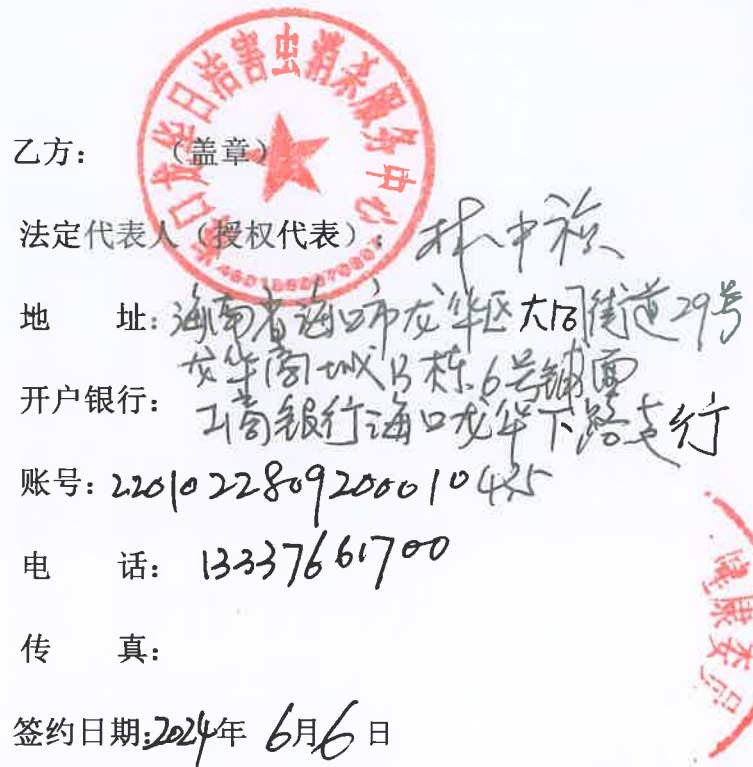 海口龙华日洁害虫消杀服务中心
乙方： （盖章）
法定代表人（授权代表）：林中
地 址：海南省海口市龙华区大同街道29号
龙华商城B栋6号铺面
开户银行：工商银行海口龙华下路支行
账号：2201022809200010425
电 话：13337661700
传 真：
签约日期：2024年 6月6日
健康委员